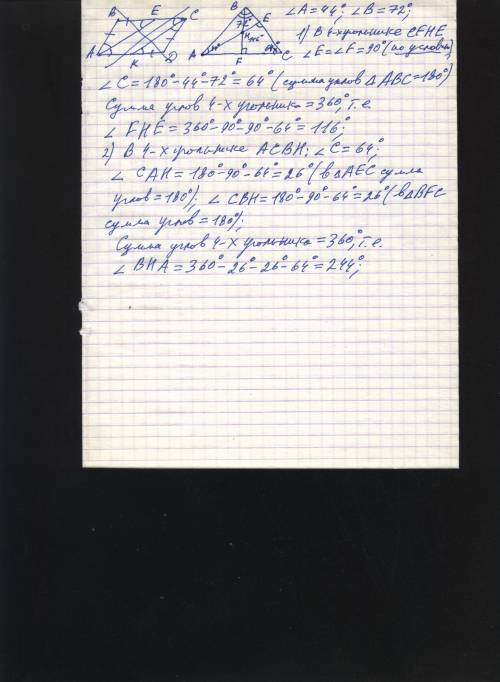 B E C
A K D
B 72° E
H 116°
A 44° F C
∠A = 44°; ∠B = 72°;
1) В 4-угольнике CFHE
∠E = ∠F = 90° (по условию)
∠C = 180° - 44° - 72° = 64° (сумма углов △ABC = 180°)
Сумма углов 4-х угольника = 360°, т.е.
∠FHE = 360° - 90° - 90° - 64° = 116°;
2) В 4-х угольнике ACBH; ∠C = 64°;
∠CAH = 180° - 90° - 64° = 26° (в △AEC сумма
углов = 180°); ∠CBH = 180° - 90° - 64° = 26° (в △BFC
сумма углов = 180°);
Сумма углов 4-х угольника = 360°, т.е.
∠BHA = 360° - 26° - 26° - 64° = 244°;